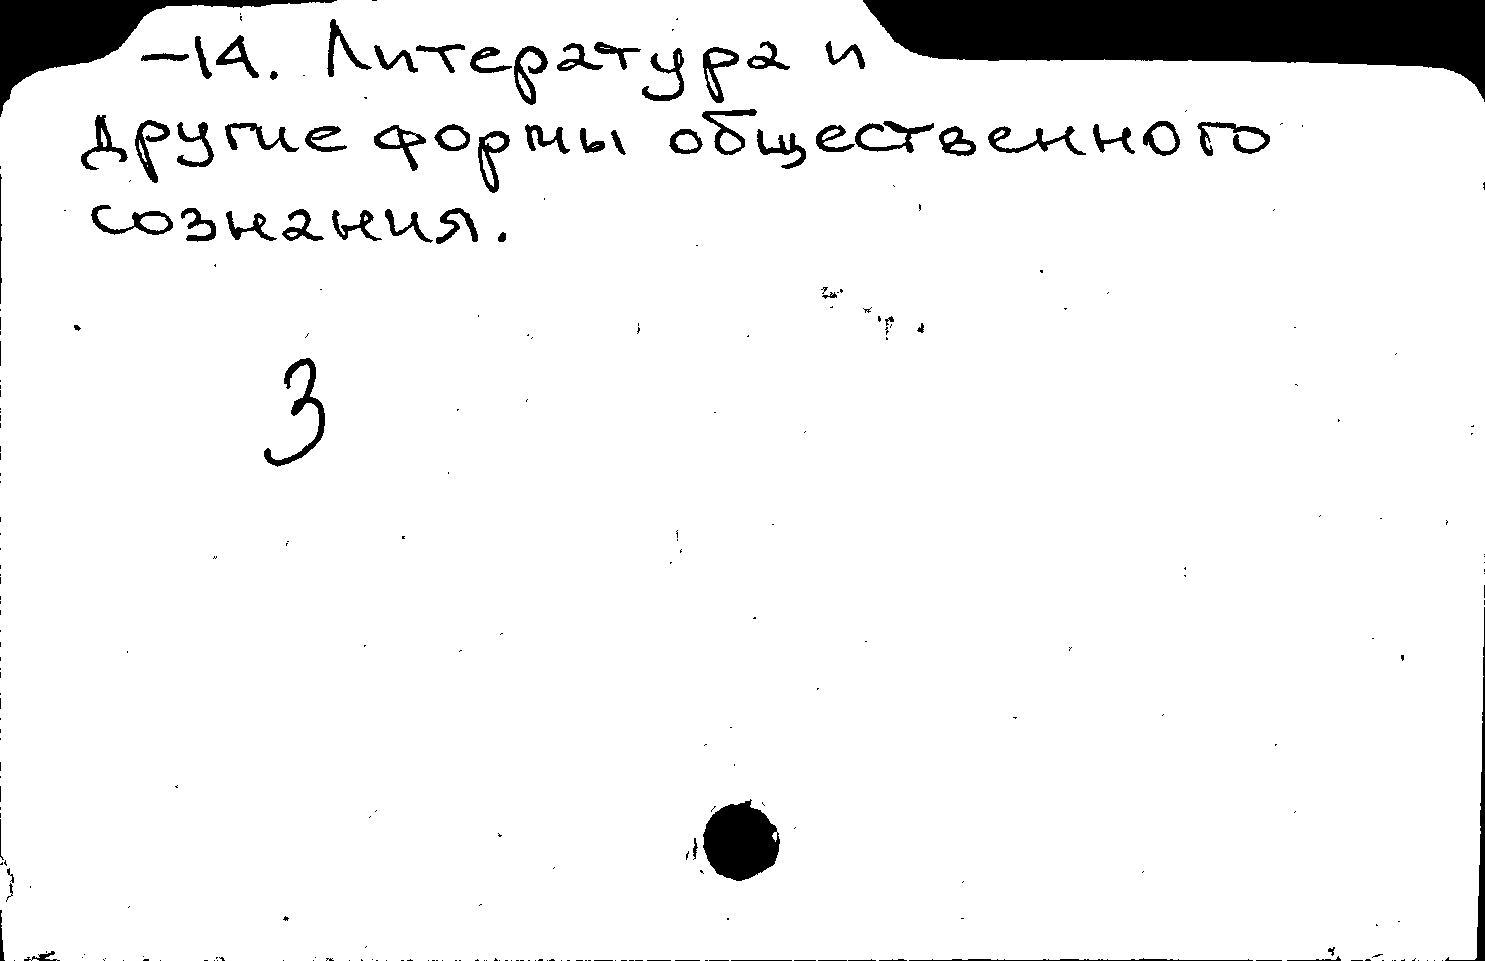 -14. Литература и
другие формы общественного
сознания.
3